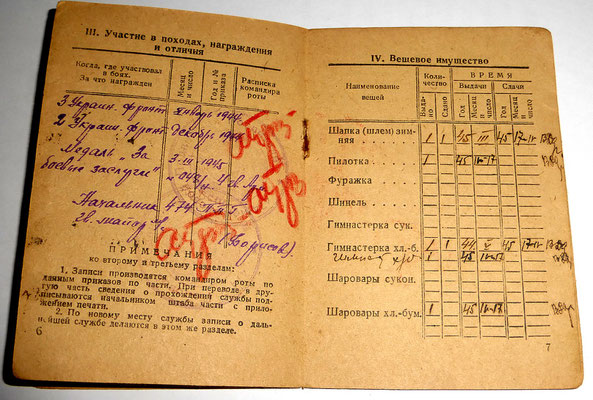 III. Участие в походах, награждения
и отличия
Когда, где участвовал
в боях.
За что награжден
Месяц
и число
Год и №
приказа
Расписка
командира
роты
3 Украин. фронт январь 1944
2 Украин. фронт декабрь 1944
Медаль „За
боевые заслуги"
3-III 1945
Начальник 4
гв. майор
(Борисов)
ПРИМЕЧАНИЯ
ко второму и третьему разделам:
1. Записи производятся командиром роты по
данным приказов по части. При переводе в дру-
гую часть сведения о прохождении службы под-
писываются начальником штаба части с прило-
жением печати.
2. По новому месту службы записи о даль-
нейшей службе делаются в этом же разделе.
6
IV. Вещевое имущество
Наименование
вещей
Коли-
чество
ВРЕМЯ
Выдачи
Сдачи
Выда-
но
Сдано
Год
Месяц
и
число
Год
Месяц
и
число
Шапка (шлем) зим-
няя 1 1 45 III 45
Пилотка 1 45
Фуражка
Шинель
Гимнастерка сук.
Гимнастерка хл.-б. 1 1 44 V 45
1 45
Шаровары сукон.
Шаровары хл.-бум. 1 45
7